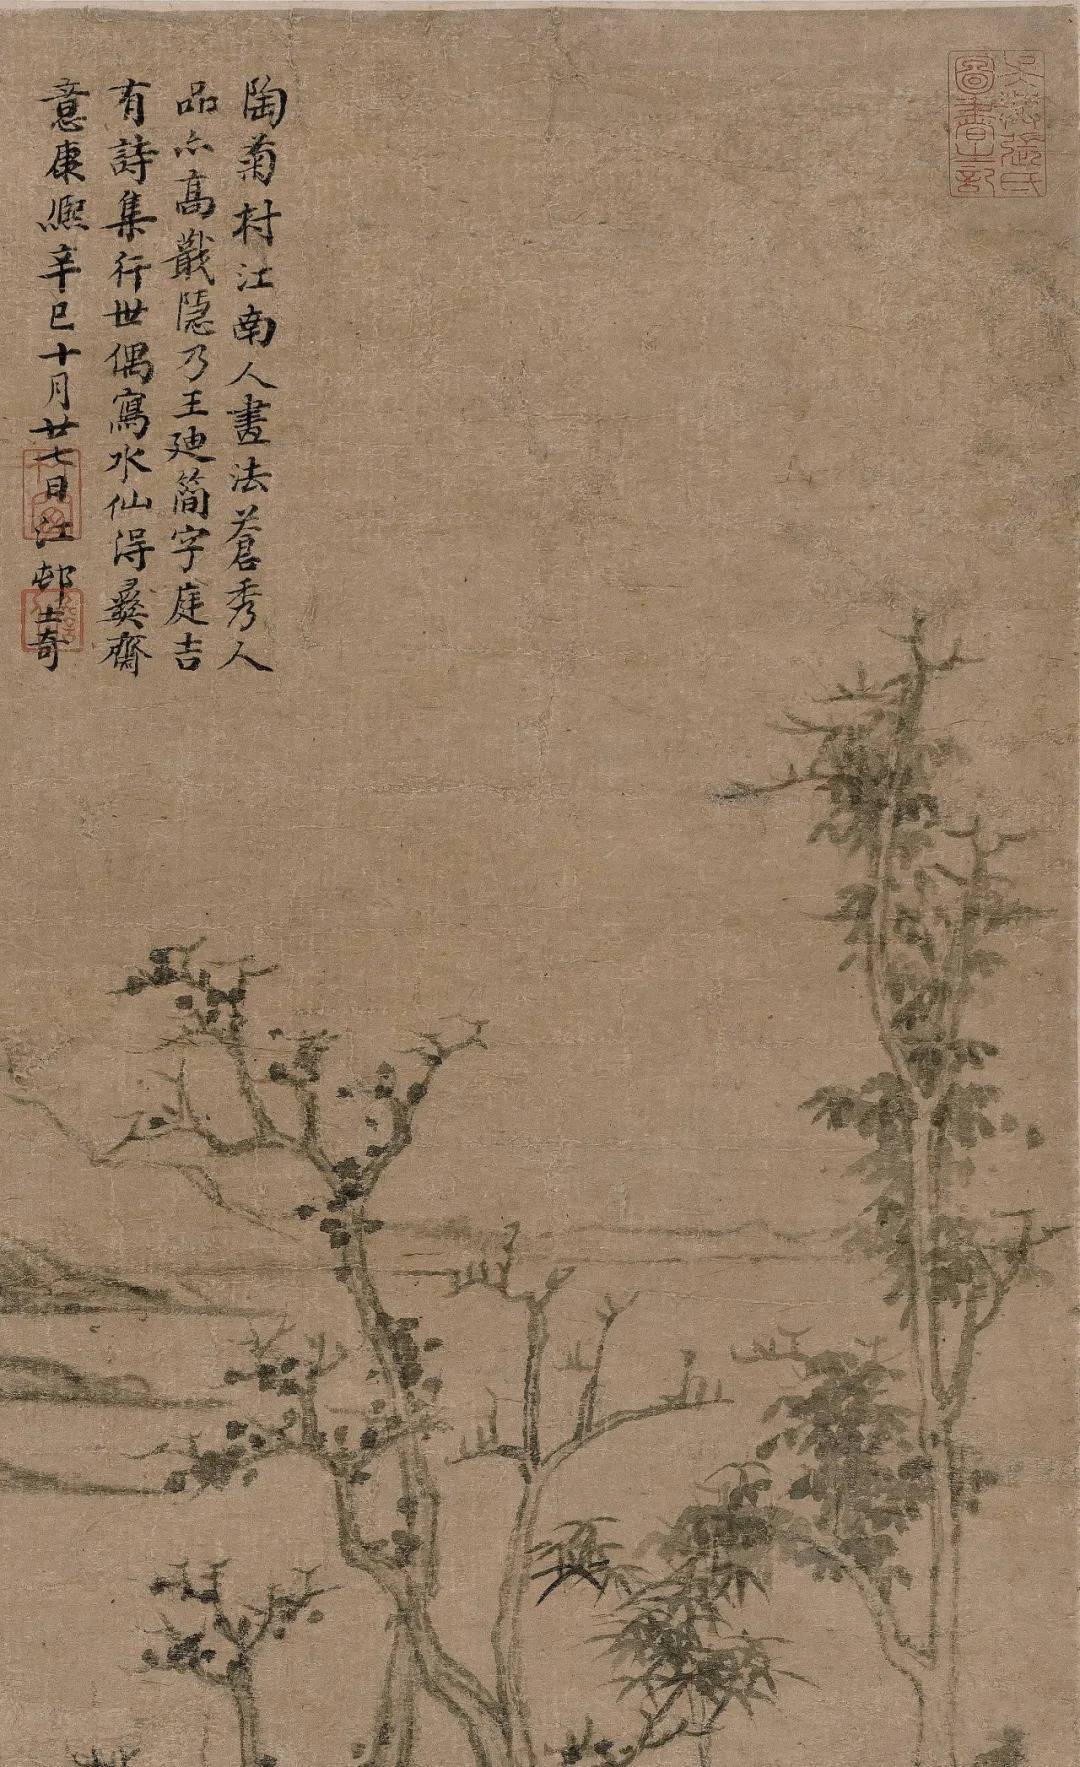 陶菊村江南人畫法蒼秀人
品亦高戢隱乃王廸簡字庭吉
有詩集行世偶寫水仙得彝齋
意康熙辛巳十月廿七日江邨士奇
張氏
圖書之記